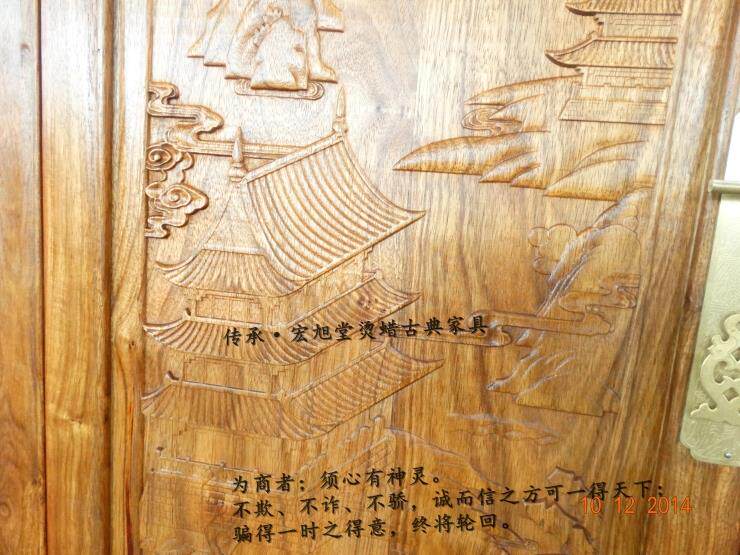 传承·宏旭堂烫蜡古典家具
为商者；须心有神灵。
不欺、不诈、不骄，诚而信之方可一得天下；
骗得一时之得意，终将轮回。
10 12 2014